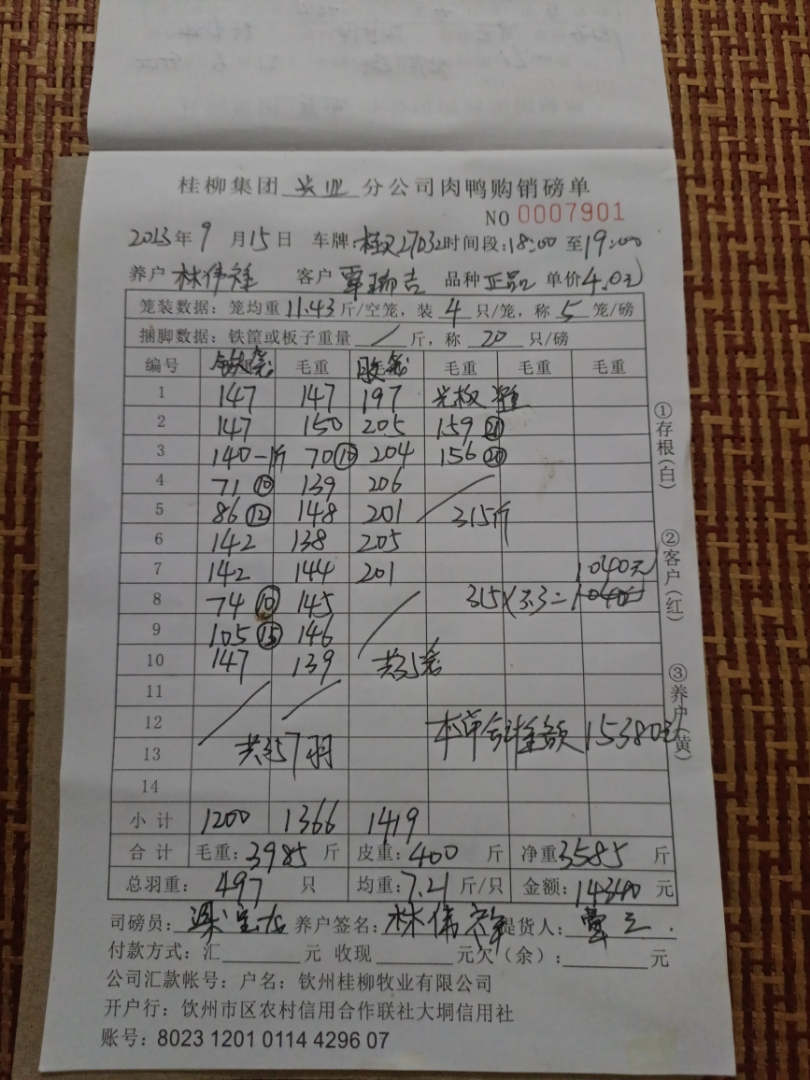 桂柳集团 兴业 分公司肉鸭购销磅单
NO 0007901
2023年 9 月 15 日 车牌: 27032 时间段: 18:00 至 19:00
养户 林伟 客户 覃瑞吉 品种 正品 单价 4.0元
笼装数据: 笼均重 11.43 斤/空笼, 装 4 只/笼, 称 5 笼/磅
捆脚数据: 铁筐或板子重量 / 斤, 称 20 只/磅
编号 毛重 毛重 毛重 毛重
1 147 147 197
2 147 150 205 159 ㉑
3 140-1斤 70 ⑩ 204 156 ⑳
4 71 ⑩ 139 206
5 86 ⑫ 148 201 315斤
6 142 138 205
7 142 144 201 1040元
8 74 ⑩ 145 315×3.3=
9 105 ⑮ 146
10 147 139 共35笼
11
12 本单合计金额 15380元
13 共357羽
14
小计 1200 1366 1419
合计 毛重: 3985 斤 皮重: 400 斤 净重 3585 斤
总羽重: 497 只 均重: 7.21 斤/只 金额: 14340 元
司磅员: 梁 养户签名: 林伟 提货人:
付款方式: 汇 元 收现 元欠(余): 元
公司汇款帐号: 户名: 钦州桂柳牧业有限公司
开户行: 钦州市区农村信用合作联社大垌信用社
账号: 8023 1201 0114 4296 07
①存根(白)
②客户(红)
③养户(黄)